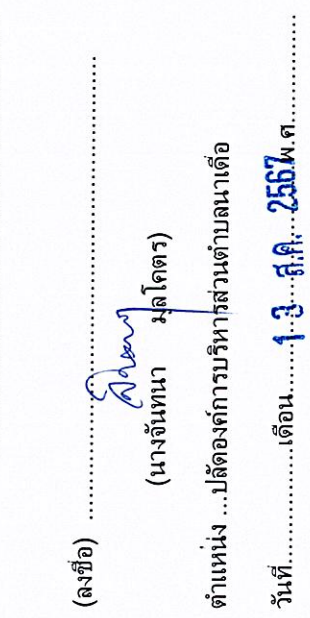 (ลงชื่อ) ................................................................
(นางจันทนา มูลโคตร)
ตำแหน่ง ...ปลัดองค์การบริหารส่วนตำบลนาเดื่อ
วันที่...................เดือน.........1 3 ส.ค. 2567.พ.ศ..............